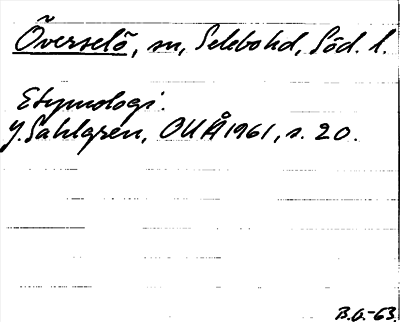 Överselö, sn, Selebo hd, Söd. l.
Etymologi.
J. Sahlgren, OUÅ 1961, s. 20.
B.O.-63.